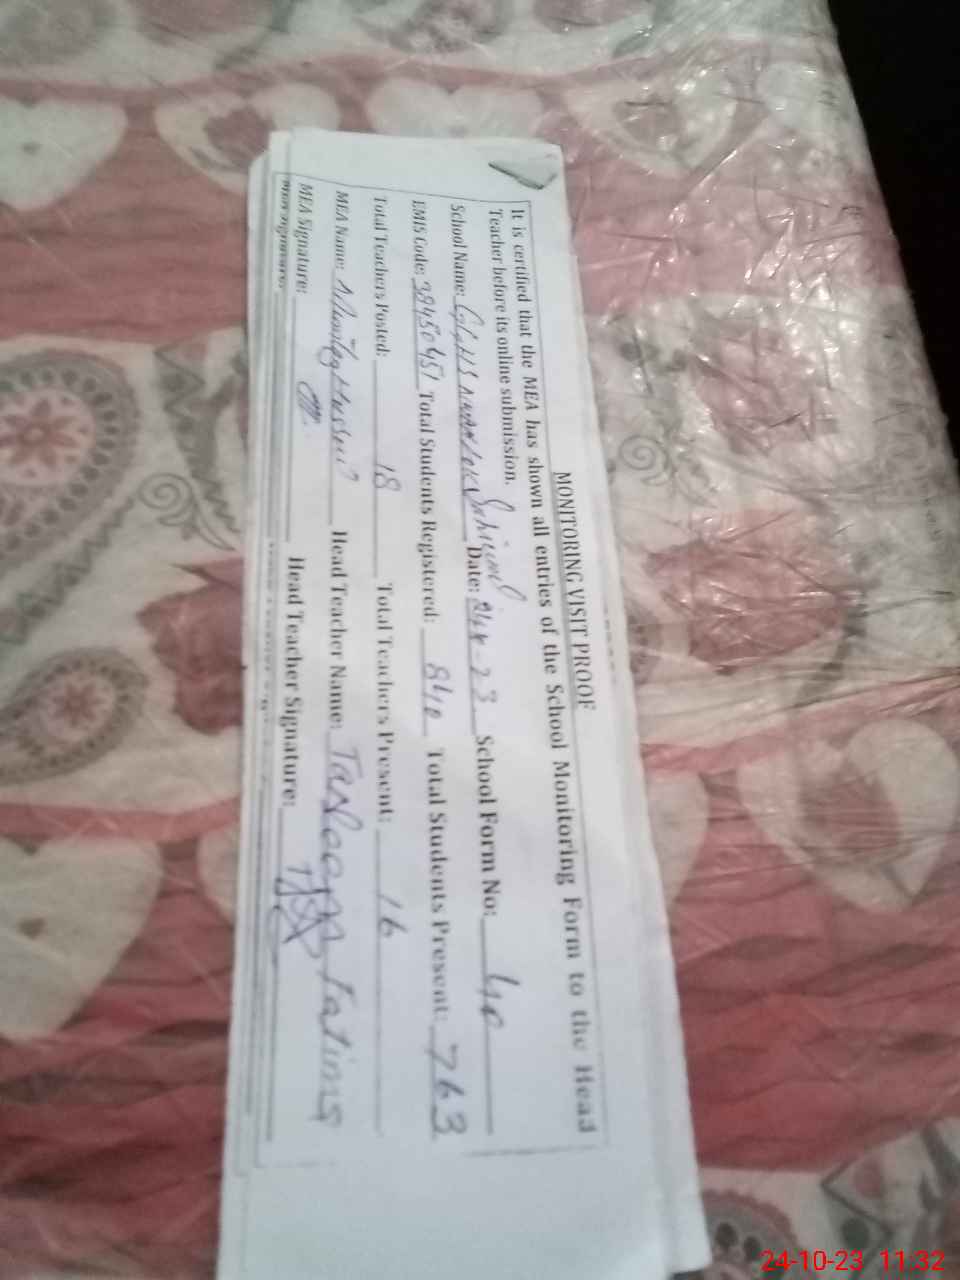 MONITORING VISIT PROOF
It is certified that the MEA has shown all entries of the School Monitoring Form to the Head
Teacher before its online submission.
School Name: Date: 24 X 23 School Form No: 40
EMIS Code: 38450451 Total Students Registered: 840 Total Students Present: 763
Total Teachers Posted: 18 Total Teachers Present: 16
MEA Name: Head Teacher Name: Tasleem Fatima
MEA Signature: Head Teacher Signature:
24-10-23 11:32